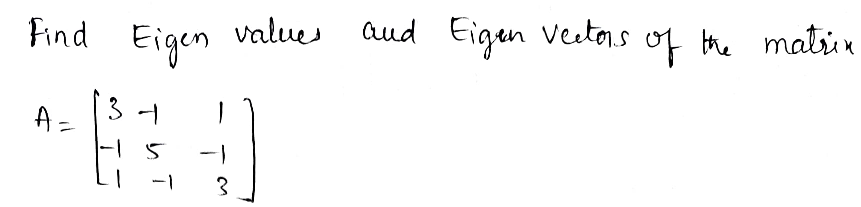 Find Eigen values and Eigen Vectors of the matrix
A = [3 -1 1
-1 5 -1
1 -1 3]